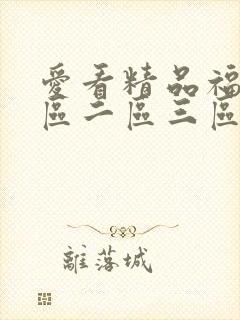 愛看精品福
區二區三區
離落城